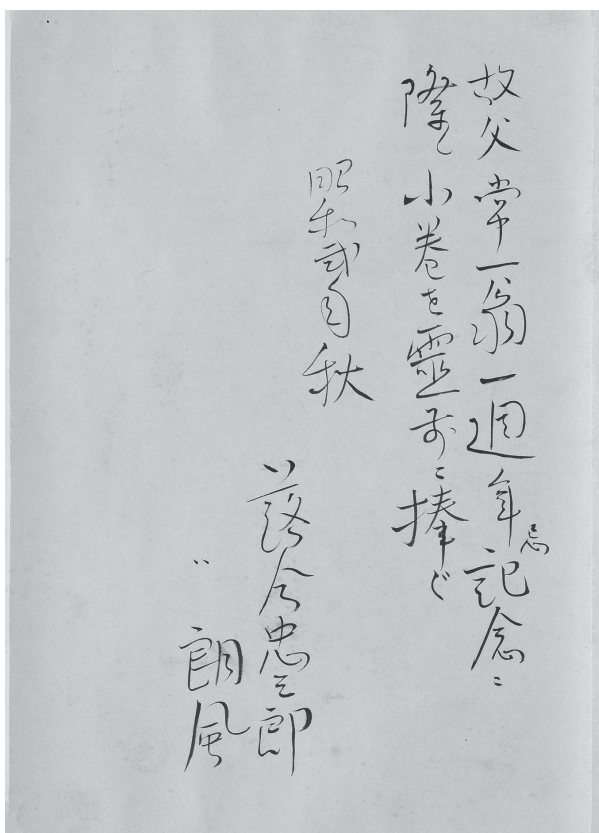 故父常一翁一週年忌記念ニ
際し小巻を靈前ニ捧ぐ
昭和弐年秋
落合忠三郎
〃 朗風